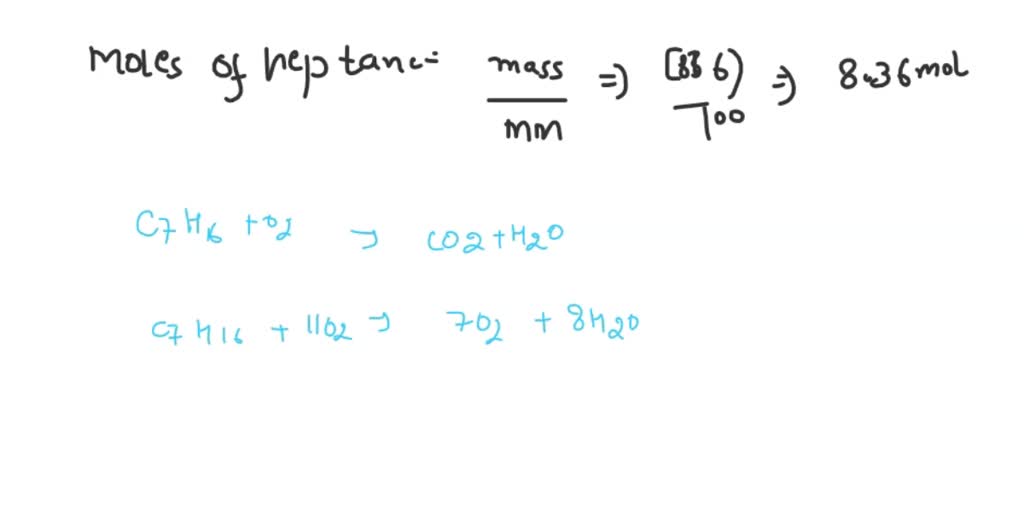 Moles of heptane= mass/mm => (836)/100 => 8.36 mol
C7H16 + O2 → CO2 + H2O
C7H16 + 11O2 → 7O2 + 8H2O